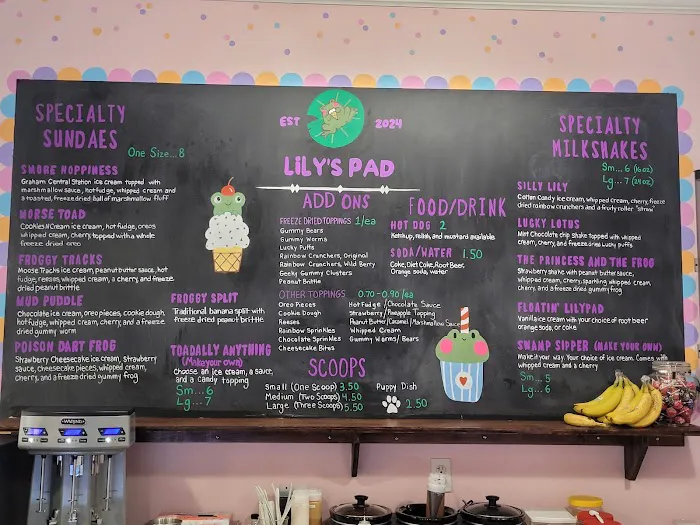 EST 2024
LILY'S PAD
SPECIALTY
SUNDAES
One Size...8
SMORE HOPPINESS
Graham Central Station ice cream topped with
marshmallow sauce, hotfudge, whipped cream and
a toasted, freeze dried ball of marshmallow fluff
HORSE TOAD
Cookies N Cream ice cream, hot fudge, oreos
whipped cream, cherry, topped with a whole
freeze dried oreo
FROGGY TRACKS
Moose Tracks ice cream, peanut butter sauce, hot
fudge, reeses, whipped cream, a cherry, and freeze
dried peanut brittle
MUD PUDDLE
Chocolate ice cream, oreo pieces, cookie dough,
hotfudge, whipped cream, cherry, and a freeze
dried gummy worm
POISON DART FROG
Strawberry Cheesecake ice cream, strawberry
sauce, cheesecake pieces, whipped cream,
cherry, and a freeze dried gummy frog
FROGGY SPLIT
Traditional banana split with
freeze dried peanut brittle
TOADALLY ANYTHING
(Make your own)
Choose an ice cream, a sauce,
and a candy topping
Sm...6
Lg...7
ADD ONS
FREEZE DRIED TOPPINGS 1/ea
Gummy Bears
Gummy Worms
Lucky Puffs
Rainbow Crunchers, Original
Rainbow Crunchers, Wild Berry
Geeky Gummy Clusters
Peanut Brittle
OTHER TOPPINGS 0.70-0.90/ea
Oreo Pieces
Cookie Dough
Reeses
Rainbow Sprinkles
Chocolate Sprinkles
Cheesecake Bites
Hot Fudge / Chocolate Sauce
Strawberry/Pineapple Topping
Peanut Butter/Caramel/Marshmallow Sauce
Whipped Cream
Gummy Worms / Bears
SCOOPS
Small (One Scoop) 3.50
Medium (Two Scoops) 4.50
Large (Three Scoops) 5.50
Puppy Dish
2.50
FOOD/DRINK
HOT DOG 2
Ketchup, relish, and mustard available
SODA/WATER 1.50
Coke, Diet Coke, Root Beer,
Orange soda, water
SPECIALTY
MILKSHAKES
Sm...6 (16 oz)
Lg...7 (24 oz)
SILLY LILY
Cotton Candy ice cream, whipped cream, cherry, freeze
dried rainbow crunchers and a fruity roller "straw"
LUCKY LOTUS
Mint Chocolate chip shake topped with whipped
cream, cherry, and freeze dried lucky puffs
THE PRINCESS AND THE FROG
Strawberry shake with peanut butter sauce,
whipped cream, cherry, sparkling whipped cream,
cherry, and a freeze dried gummy frog
FLOATIN' LILYPAD
Vanilla ice cream with your choice of root beer
orange soda, or coke
SWAMP SIPPER (MAKE YOUR OWN)
Make it your way. Your choice of ice cream. Comes with
whipped cream and a cherry
Sm...5
Lg...6
WARING